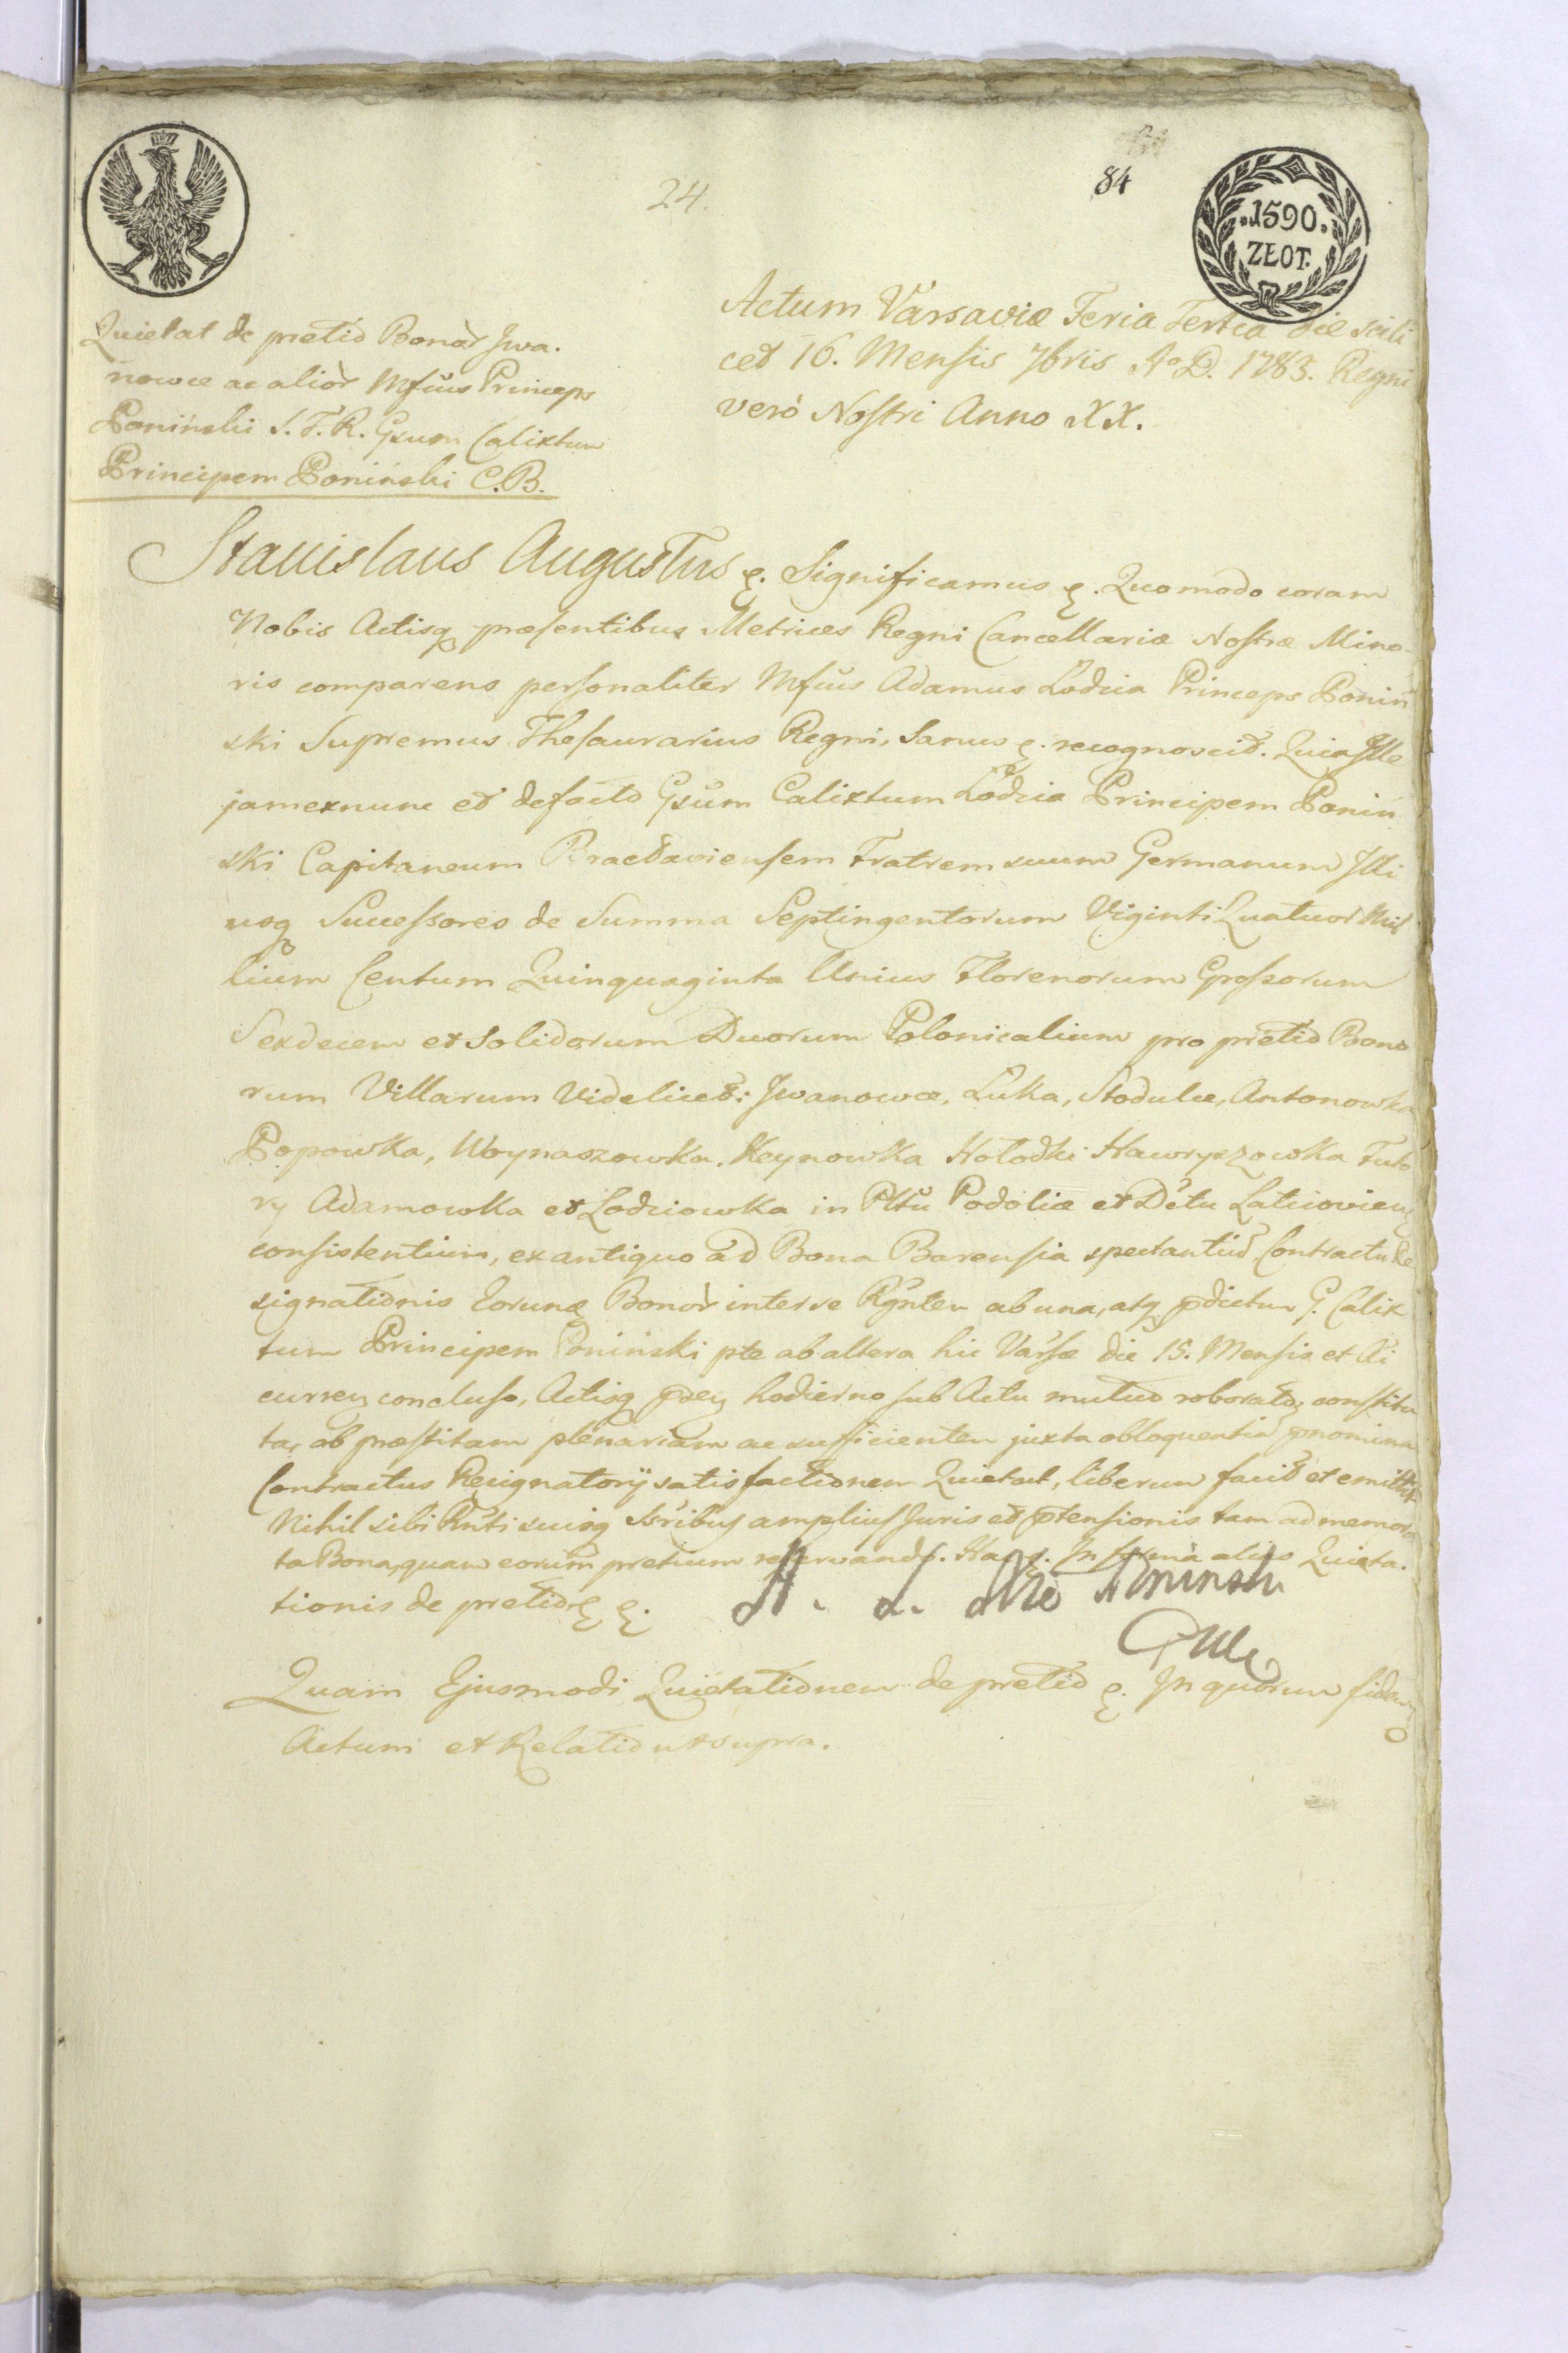 24.
84
.1590.
ZŁOT.
Quietat de pretio Bonor Jwa.
nowce ac alior Mfcus Princeps
Poniński S. T. R. Gsum Calixtum
Principem Poniński C. B.
Actum Varsaviæ Feria Tertia die scili
cet 16. Mensis 7bris Ao D. 1783. Regni
verò Nostri Anno XX.
Stanislaus Augustus &. Significamus &. Quomodo coram
Nobis Actisq præsentibus Metrices Regni Cancellariæ Nostræ Mino-
ris comparens personaliter Mfcus Adamus Lodzia Princeps Poniń
ski Supremus Thesaurarius Regni, Sanus &. recognovit. Quia Ille
jamexnunc et defacto Gsum Calixtum Lodzia Principem Poniń
ski Capitaneum Bracłaviensem Fratrem suum Germanum Illi
usq Successores de Summa Septingentorum Viginti Quatuor Mil
lium Centum Quinquaginta Unius Florenorum Grossorum
Sexdecem et Solidorum Duorum Polonicalium pro pretio Bono
rum Villarum Videlicet: Jwanowce, Łuka, Stodulce, Antonowka
Popowka, Woynaszowka, Keynowka Hołodki Hawryszowka Futo
ry Adamowka et Lodziowka in Pltu Podoliæ et Dctu Laticovien
consistentium, ex antiquo ad Bona Barensia spectantiu Contractu Re
signationis Eorunq Bonor inter se Rgnten ab una, atq pdictum G. Calix
tum Principem Poniński pte ab altera hic Varsæ die 15. Mensis et Ai
curren concluso, Actisq hodierno sub Actu mutuo roborato, constitu
ta, ob præstitam plenariam ac sufficientem juxta obloquentia pnomina
Contractus Resignatorij satisfactionem Quietat, liberum facit et emittit
Nihil sibi Rnti suisq Ssribus amplius Juris et ptensionis tam ad memora
ta Bona, quam eorum pretium reservando. In forma alias Quieta.
tionis de pretio & &.
A. L. Poninski
Quam Ejusmodi Quietationem de pretio &. In quorum fidem
Actum et Relatio ut supra.